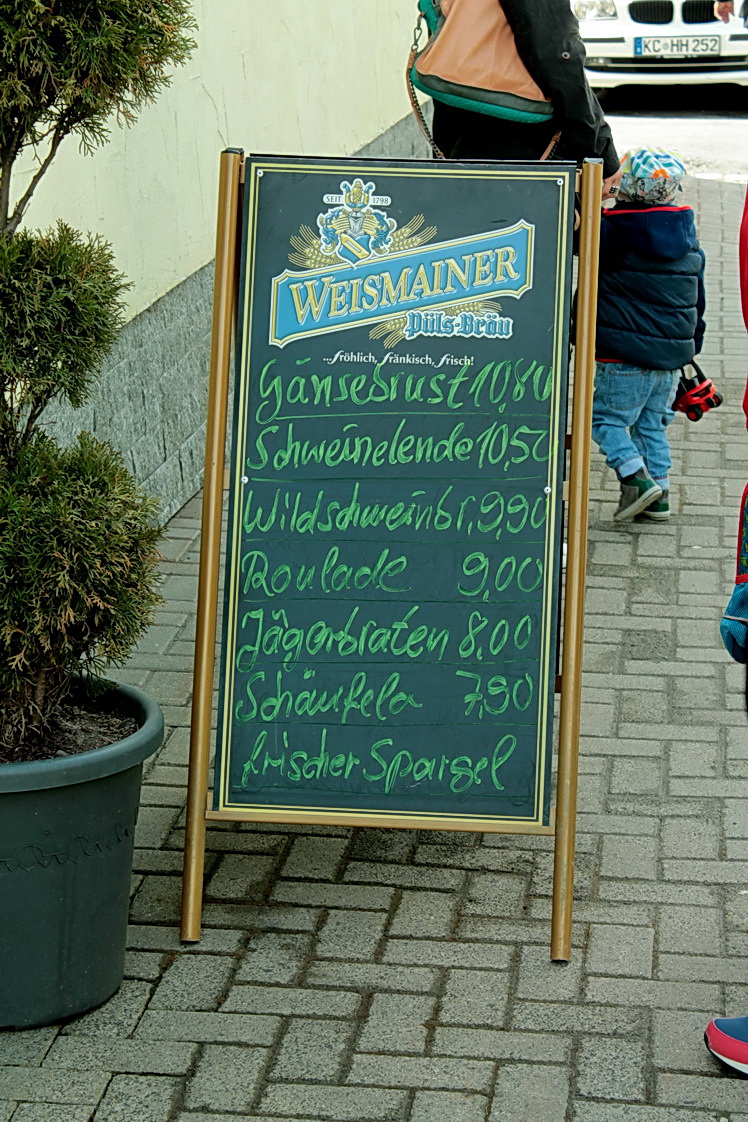 KC HH 252
SEIT 1798
WEISMAINER
Püls-Bräu
...fröhlich, fränkisch, frisch!
Gänsebrust 10,80
Schweinelende 10,50
Wildschweinbr. 9,90
Roulade 9,00
Jägerbraten 8,00
Schäufela 7,90
frischer Spargel